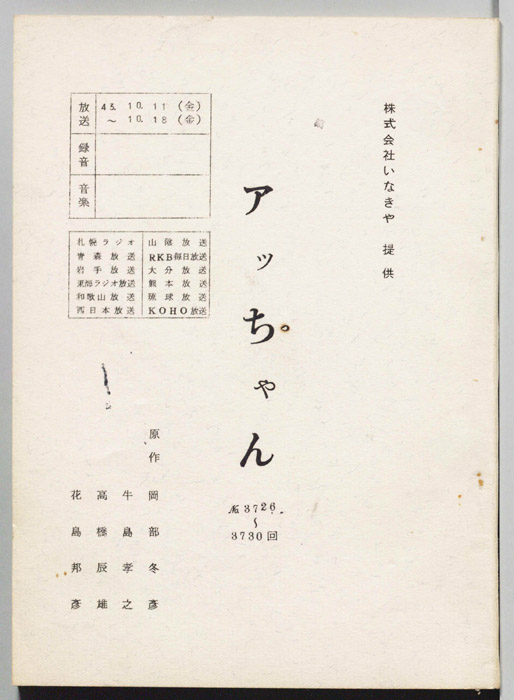 株式会社いなきや 提供
アッちゃん
№3726
〜
3730回
放送 43. 10. 11 (金)
〜 10. 18 (金)
録音
音楽
札幌ラジオ 山陰放送
青森放送 RKB毎日放送
岩手放送 大分放送
東海ラジオ放送 熊本放送
和歌山放送 琉球放送
西日本放送 KOHO放送
原作
岡部冬彦
牛島孝之
高橋辰雄
花島邦彦